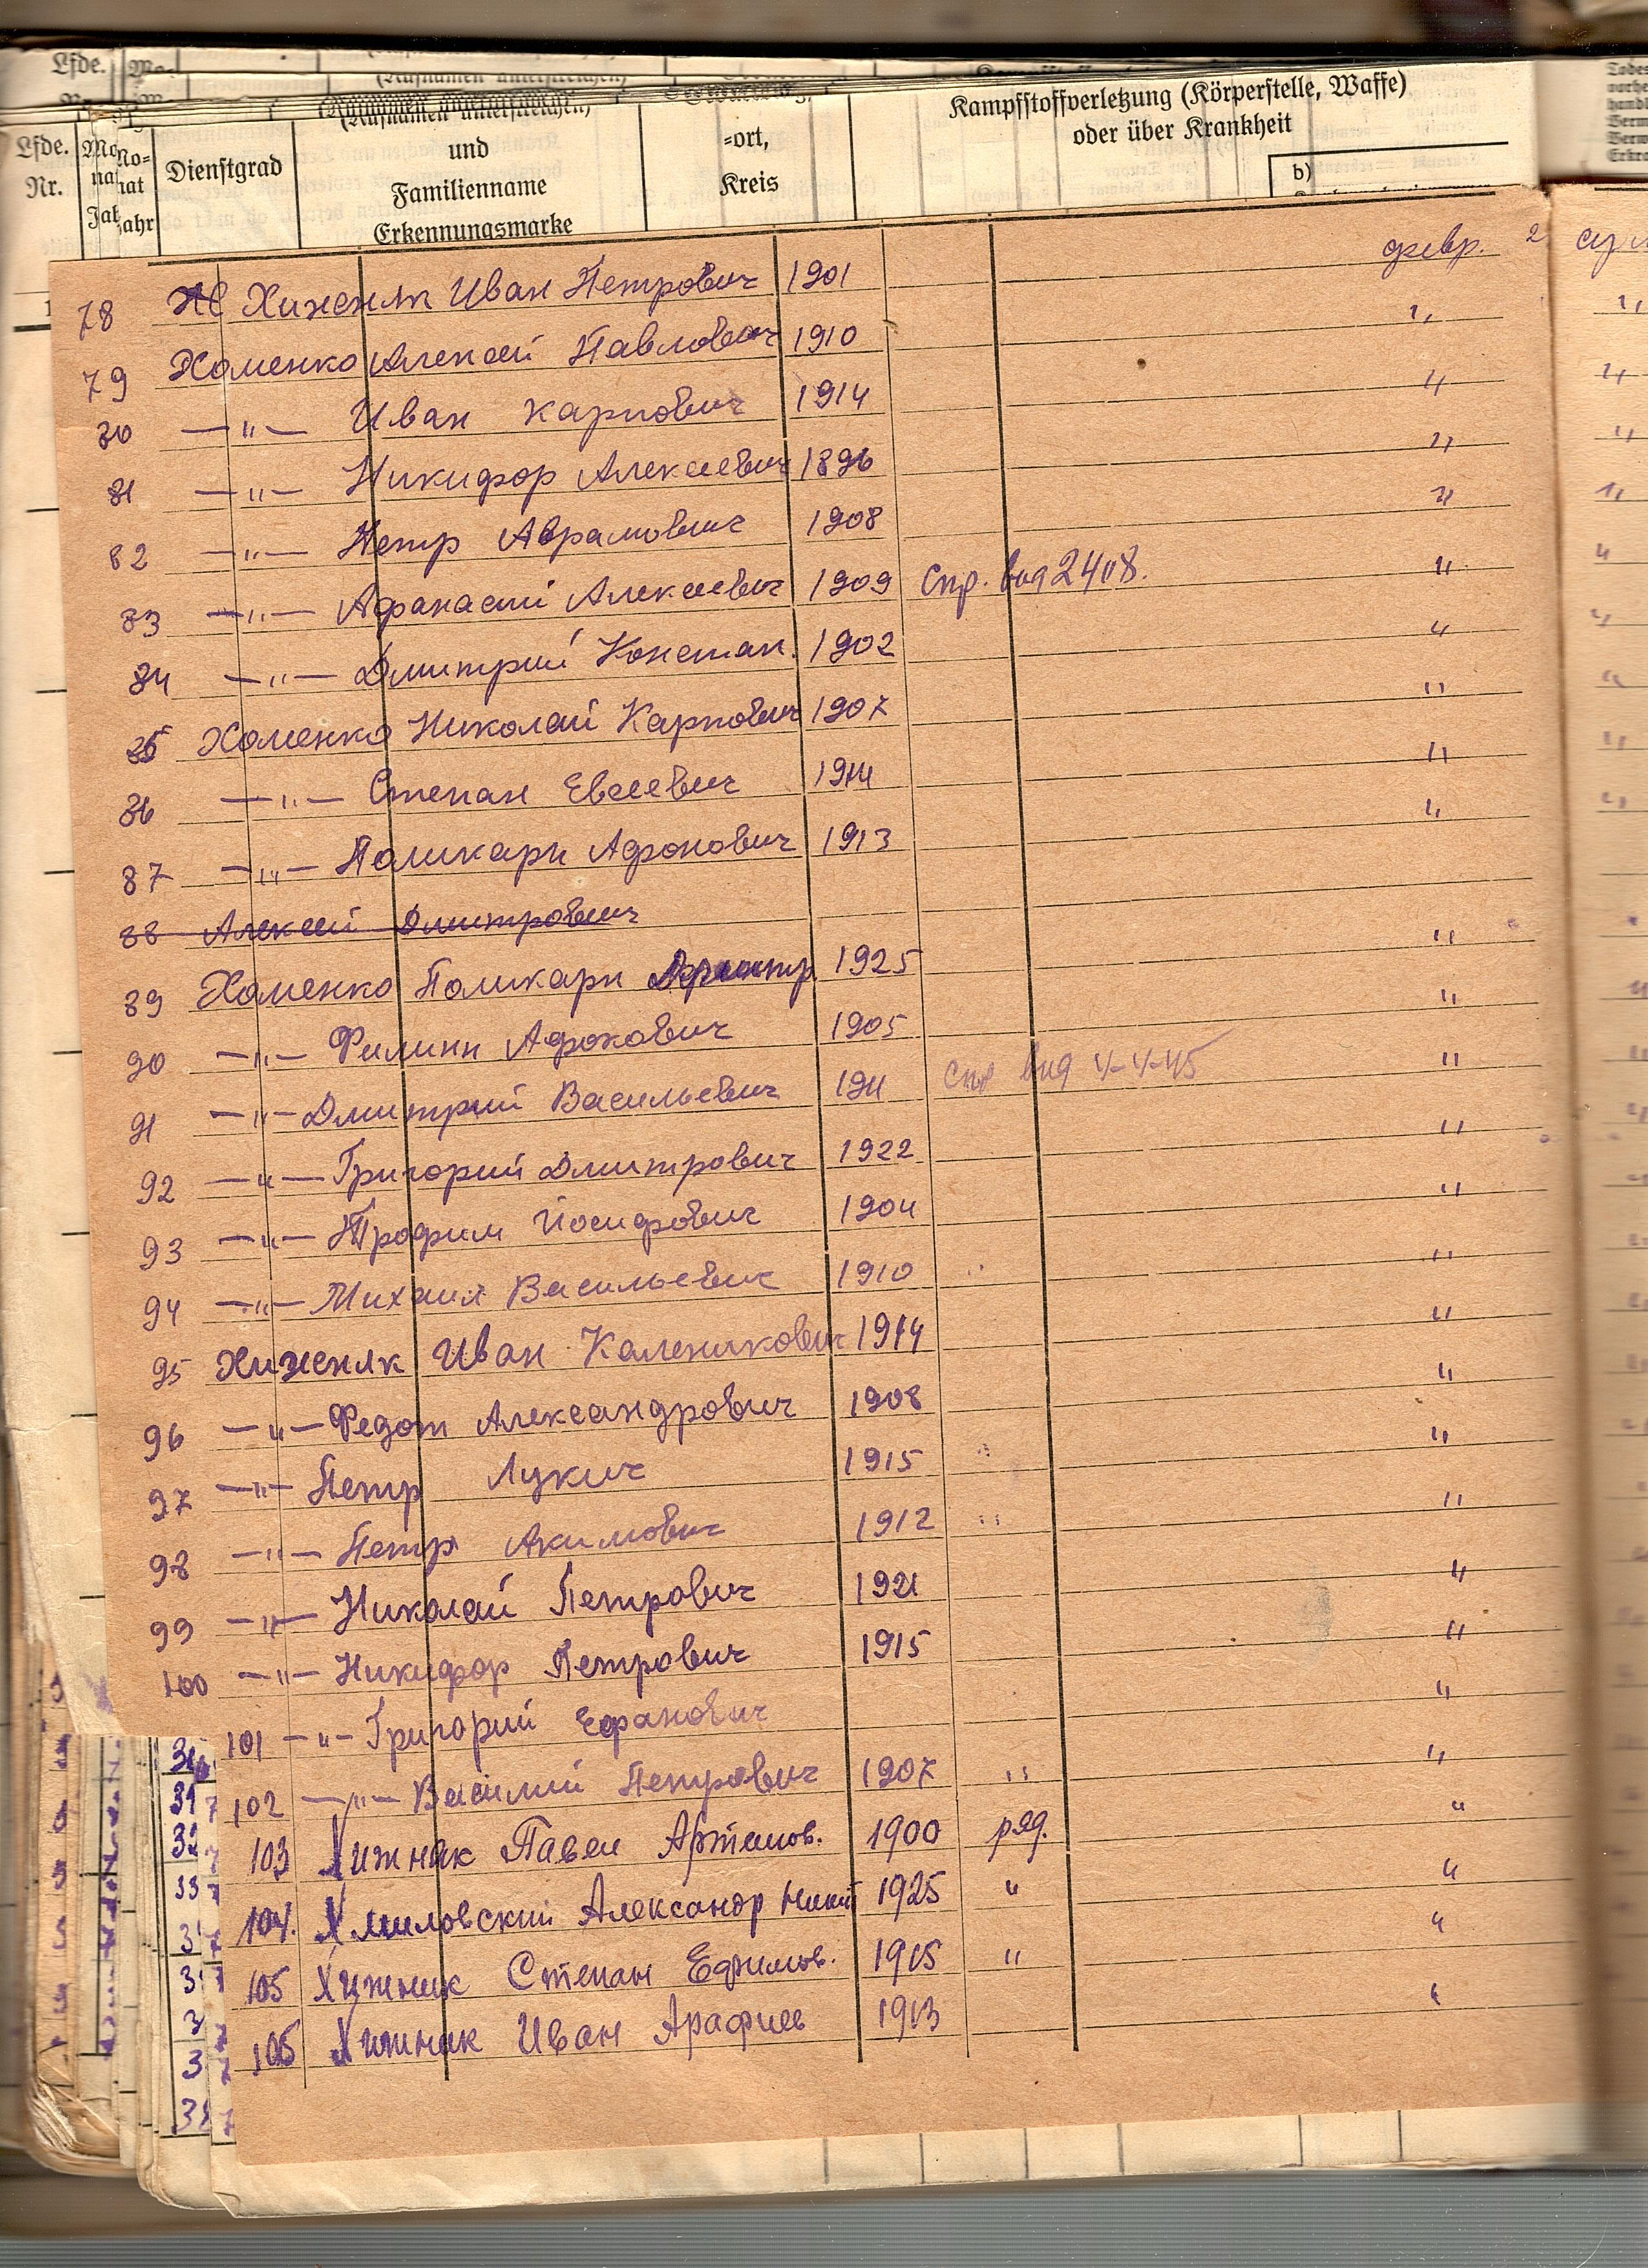 Lfde.
(Rufnamen unterstreichen)
Kampfstoffverletzung (Körperstelle, Waffe)
oder über Krankheit
Lfde. Nr.
Mo-nat Jahr
Dienstgrad
und
Familienname
Erkennungsmarke
=ort,
Kreis
b)
78 Хиженяк Иван Петрович 1901 февр. 2
79 Хоменко Алексей Павлович 1910 "
80 —"— Иван Карпович 1914 "
81 —"— Никифор Алексеевич 1896 "
82 —"— Петр Аврамович 1908 "
83 —"— Афанасий Алексеевич 1909 Спр. выд "
84 —"— Дмитрий Констан. 1902 "
85 Хоменко Николай Карпович 1907 "
86 —"— Степан Евсеевич 1914 "
87 —"— Поликарп Афонович 1913 "
88 Алексей Дмитрович
89 Хоменко Поликарп 1925 "
90 —"— Филипп Афонович 1905 "
91 —"— Дмитрий Васильевич 1911 Спр выд 4-4-45 "
92 —"— Григорий Дмитрович 1922 "
93 —"— Трофим Йосифович 1904 "
94 —"— Михаил Васильевич 1910 " "
95 Хиженяк Иван Каленикович 1914 "
96 —"— Федот Александрович 1908 "
97 —"— Петр Лукич 1915 " "
98 —"— Петр Акимович 1912 " "
99 —"— Николай Петрович 1921 "
100 —"— Никифор Петрович 1915 "
101 —"— Григорий Ефанович "
102 —"— Василий Петрович 1907 " "
103 Хижняк Павел Артемов. 1900 ряд. "
104. Хмиловский Александр Никит 1925 " "
105 Хижняк Степан Ефимов. 1915 " "
105 Хижняк Иван 1913 "